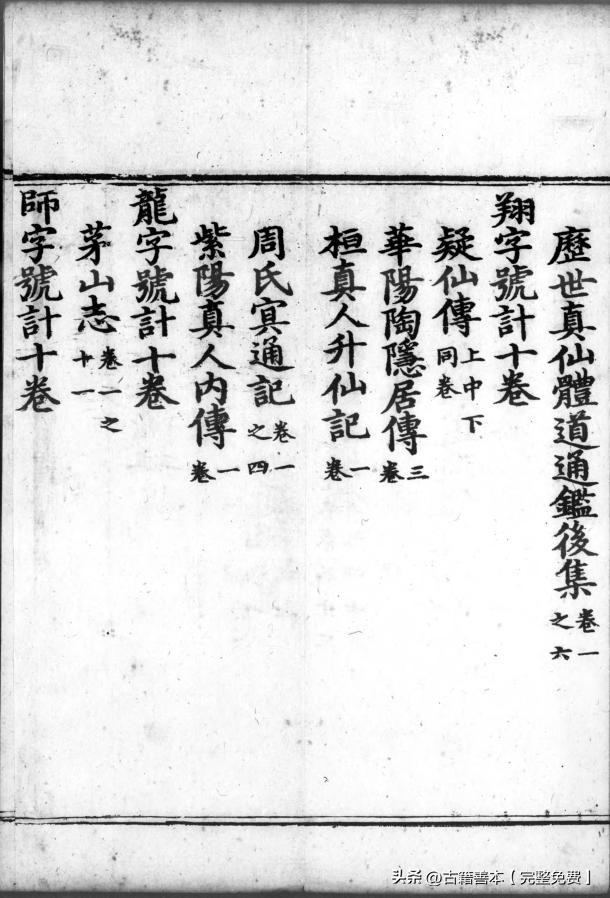 歷世真仙體道通鑑後集卷一之六
翔字號計十卷
疑仙傳上中下同卷
華陽陶隱居傳三卷
桓真人升仙記一卷
周氏冥通記卷一之四
紫陽真人內傳一卷
龍字號計十卷
茅山志卷一之十一
師字號計十卷
头条 @古籍善本【完整免费】